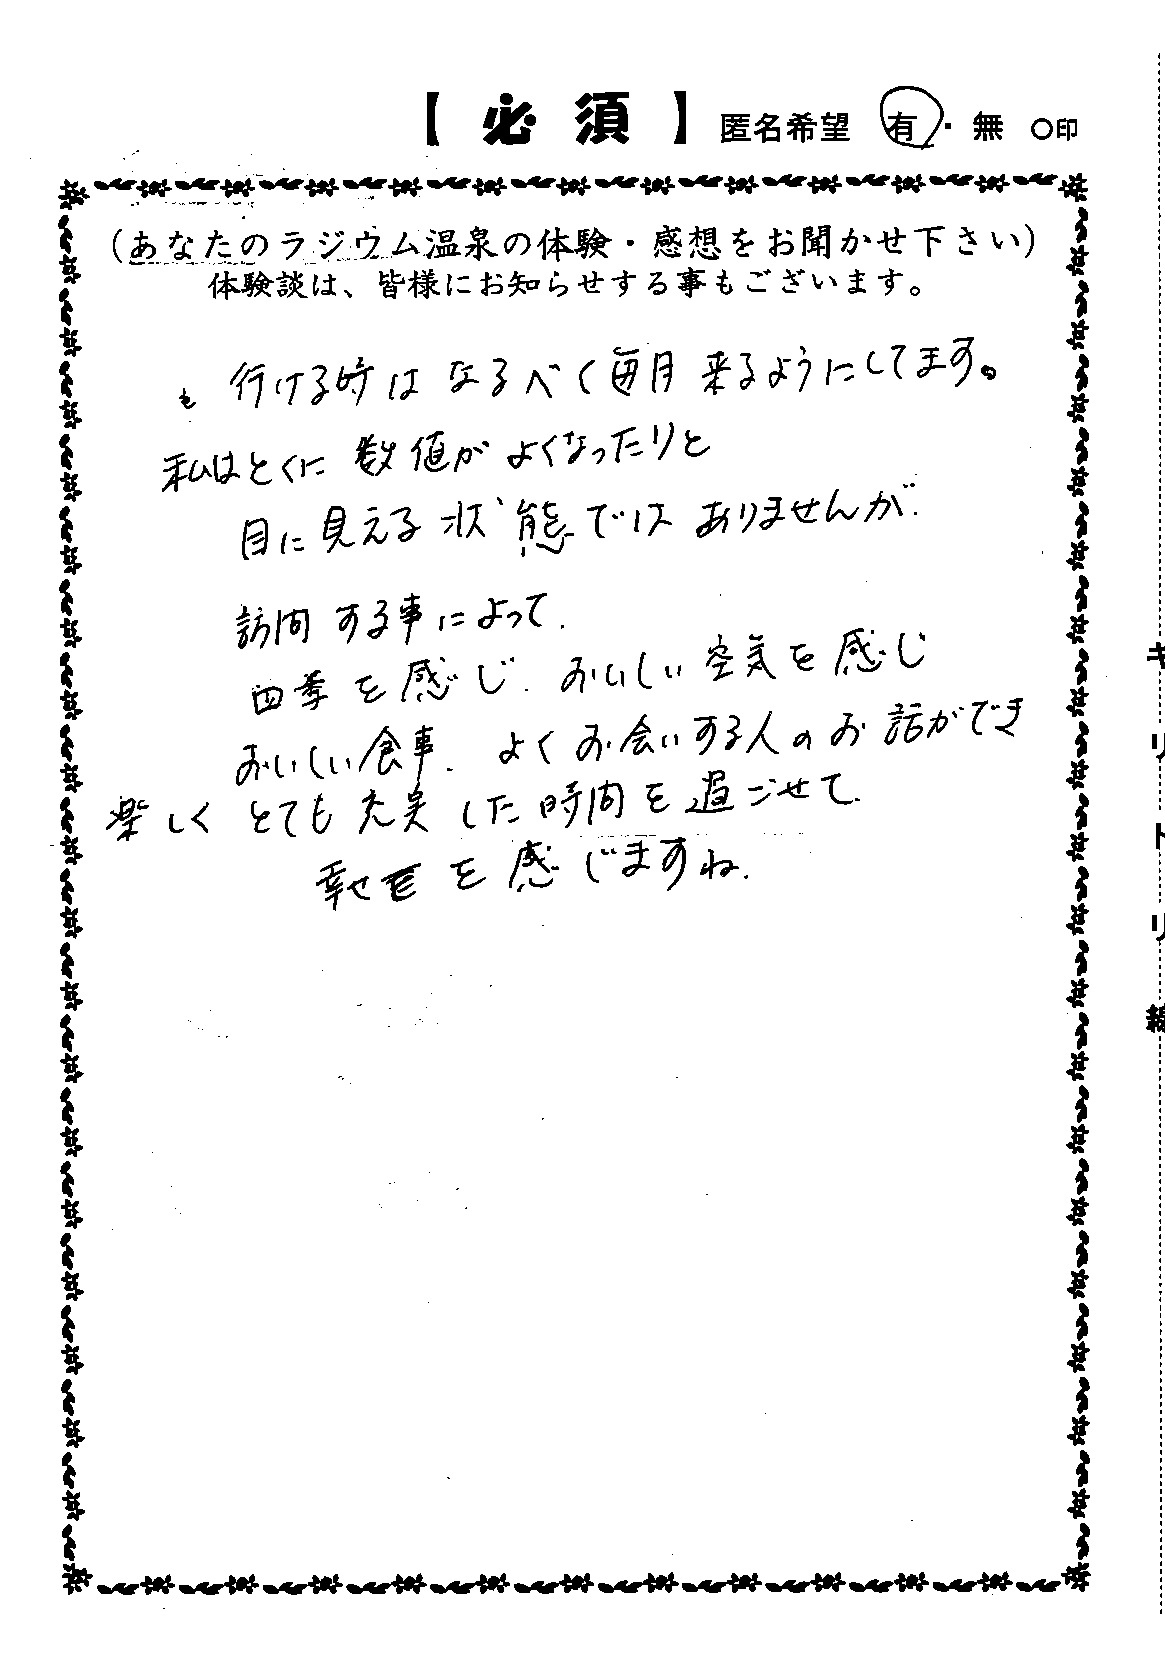 【必須】 匿名希望 有・無 ○印
(あなたのラジウム温泉の体験・感想をお聞かせ下さい)
体験談は、皆様にお知らせする事もございます。
行ける時は なるべく毎月 来るようにしてます。
私はとくに 数値が よくなったりと
目に見える 状態では ありませんが.
訪問 する事によって.
四季を感じ. おいしい空気を感じ
おいしい食事. よくお会いする人のお話ができ
楽しく とても充実した時間を過ごせて.
幸せを感じますね.
キリトリ線